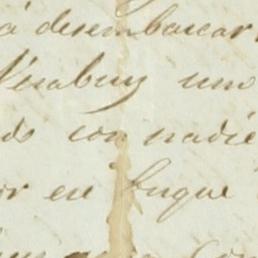 á desembarcar
Veracruz uno
do con nadie
or en buque